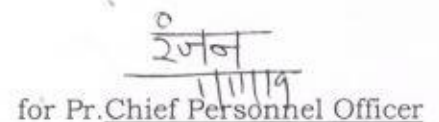 रंजन
1/11/19
for Pr.Chief Personnel Officer